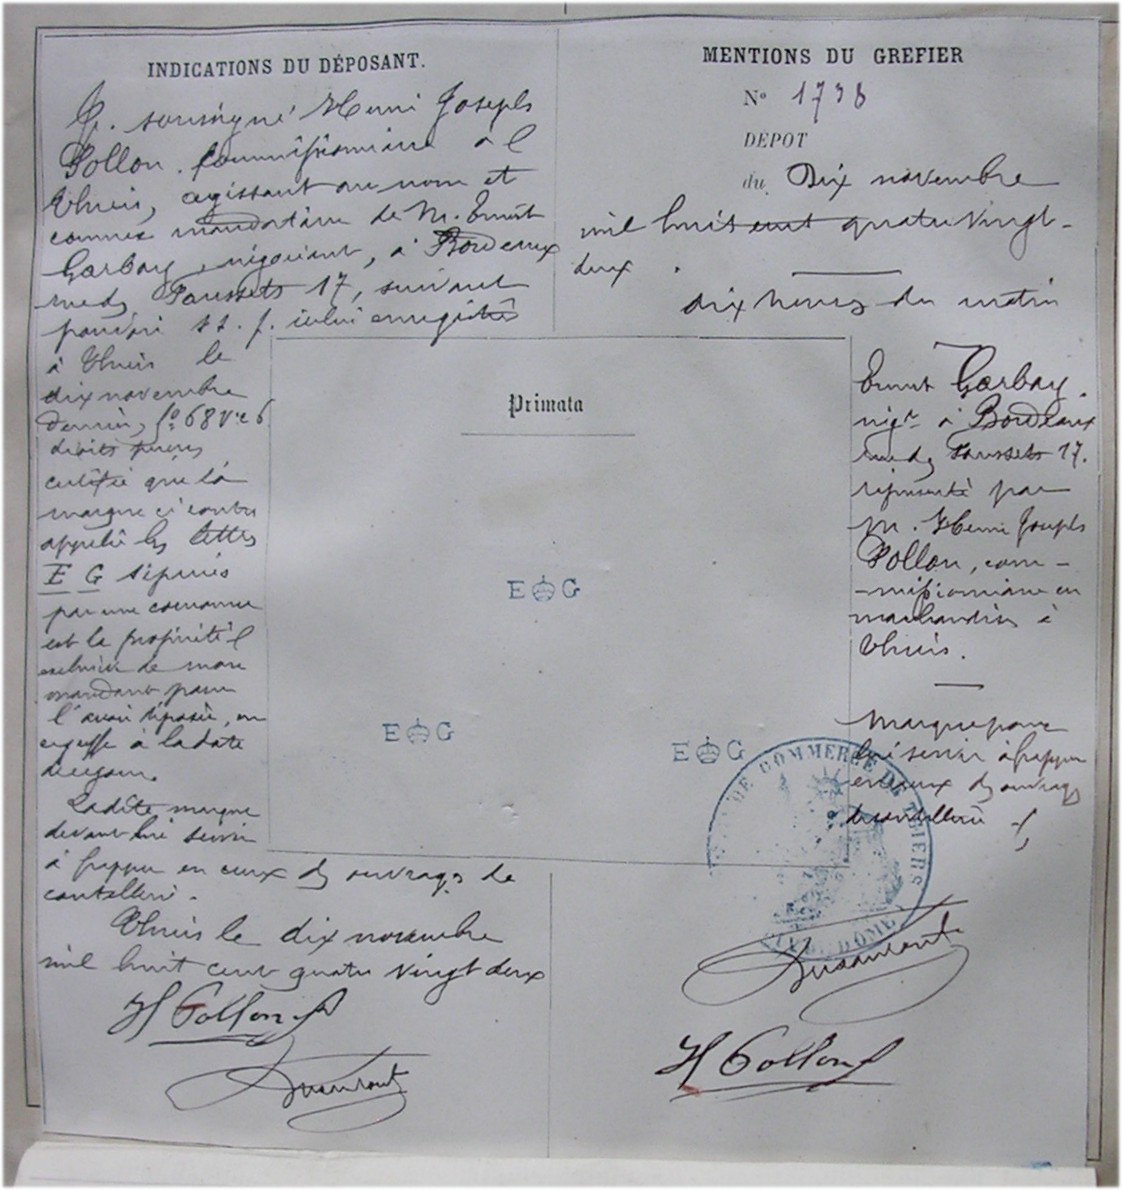 INDICATIONS DU DÉPOSANT.
Je soussigné Henri Joseph
Pollon. Commissionnaire à
Thiers, agissant au nom et
comme mandataire de M. Ernest
Garbay, négociant, à Bordeaux
rue des Faussets 17, suivant
pouvoir ss. p. celui enregistré
à Thiers le
dix novembre
dernier, fo 68 Vo c 6
droits perçus
certifie que la
marque ci contre
appelée les lettres
E G séparées
par une couronne
est la propriété
exclusive de mon
mandant pour
l'avoir déposée, au
greffe à la date
de ce jour.
Ladite marque
devant lui servir
à frapper en creux des ouvrages de
coutellerie.
Thiers le dix novembre
mil huit cent quatre vingt deux
H Pollon
MENTIONS DU GREFIER
No 1738
DÉPOT
du Dix novembre
mil huit cent quatre vingt-
deux.
dix heures du matin
Ernest Garbay.
négt à Bordeaux
rue des Faussets 17.
représenté par
M. Henri Joseph
Pollon, com-
-missionnaire en
marchandises à
Thiers.
Marque pour
lui servir à frapper
en creux des ouvrages
de coutellerie
H Pollon
Primata
E G
E G
E G
DE COMMERCE DE THIERS
DOME